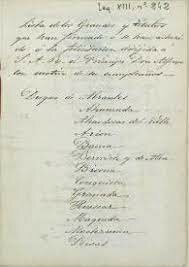 Leg. XIII, nº 842
Lista de los Grandes y Títulos
que han firmado ó se han adherido
á la felicitacion dirigida á
S. A. R. el Príncipe Don Alfonso
con motivo de su cumpleaños.
Duques de Abrantes
Ahumada
Almodovar del Valle
Arion
Baena
Berwick y de Alba
Bivona
Conquista
Granada
Huescar
Maqueda